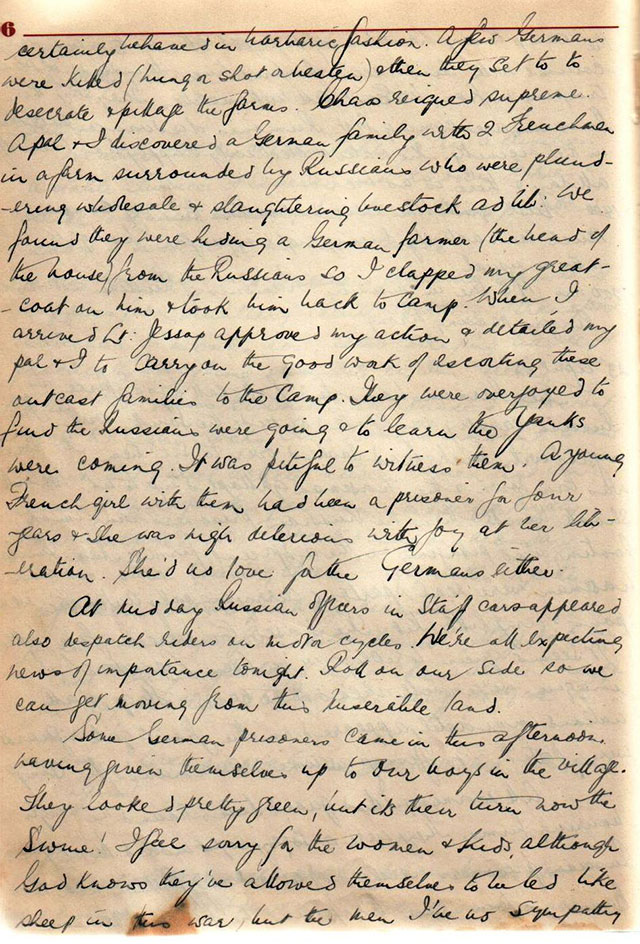 6
certainly behaved in barbaric fashion. A few Germans
were killed (hung or shot or beaten) & then they set to to
desecrate & pillage the farms. Chaos reigned supreme.
A pal & I discovered a German family with 2 Frenchmen
in a farm surrounded by Russians who were plund-
-ering wholesale & slaughtering livestock ad lib: We
found they were hiding a German farmer (the head of
the house) from the Russians so I clapped my great-
-coat on him & took him back to camp. When I
arrived Lt: Jessop approved my action & detailed my
pal & I to carry on the good work of escorting these
outcast families to the Camp. They were overjoyed to
find the Russians were going & to learn the Yanks
were coming. It was pitiful to witness them. A young
French girl with them had been a prisoner for four
years & she was nigh delerious with joy at her lib-
-eration. She'd no love for the Germans either.
At midday Russian officers in Staff cars appeared
also despatch riders on motor cycles. We're all expecting
news of importance tonight. Roll on our side so we
can get moving from this miserable land.
Some German prisoners came in this afternoon
having given themselves up to our boys in the village.
They looked pretty green, but it's their turn now the
Swine! I feel sorry for the women & kids, although
God knows they've allowed themselves to be led like
sheep in this war, but the men I've no sympathy